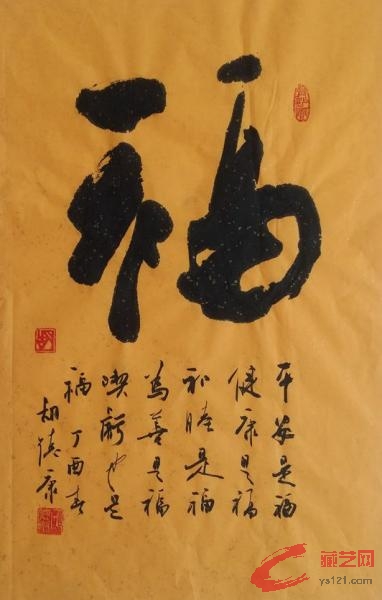 福
平安是福
健康是福
和睦是福
为善是福
喫虧也是
福 丁酉春
胡镇康
藏艺网
ys121.com